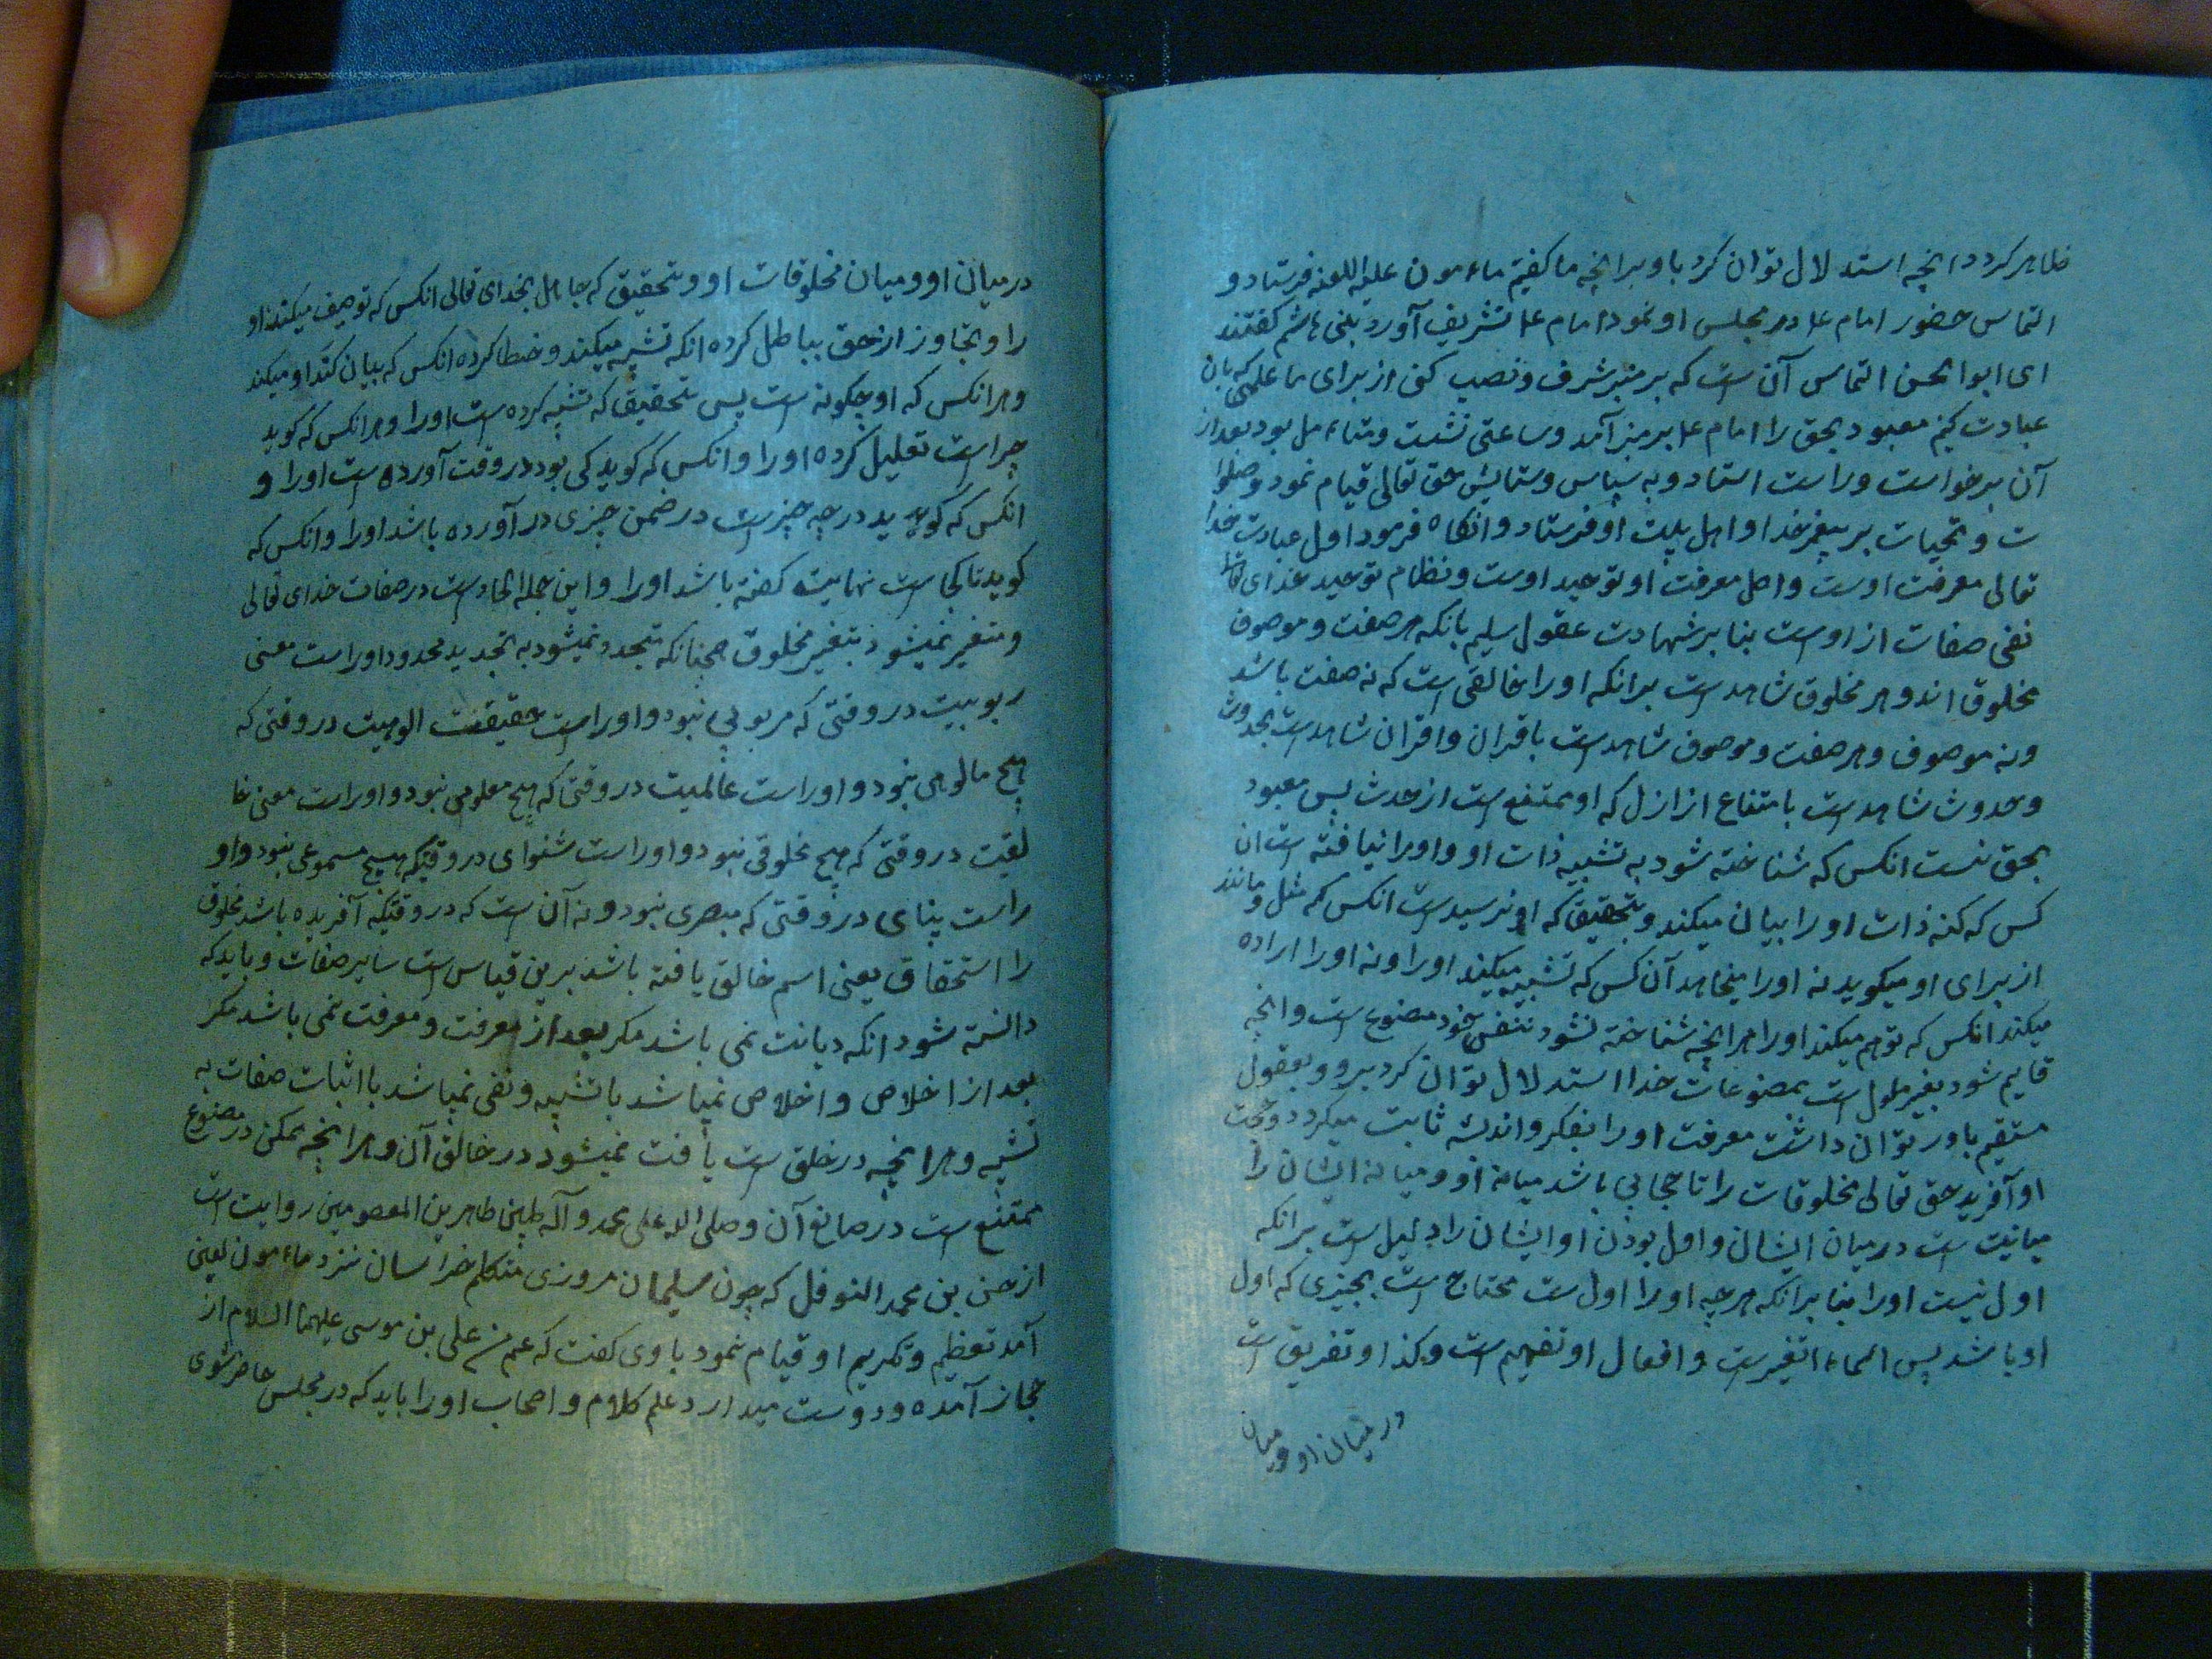 ظاهر کردد انچه استدلال توان کرد باو برانچه ما کفتیم ماءمون علیه اللعنه فرستاد و
التماس حضور امام ع‍ا در مجلس او نمود امام ع‍ا تشریف آورد بنی هاشم کفتند
ای ابوالحسن التماس آن است که بر منبر شرف و نصب کنی از برای ما علمی که بان
عبادت کنیم معبود بحق را امام ع‍ا بر منبر آمد و ساعتی نشست و متاءمل بود بعد از
آن برخواست و راست استاد و به سپاس و ستایش حق تعالی قیام نمود و صلوا
ت و تحیات بر پیغمبر خدا و اهل بیت او فرستاد و انکاه فرمود اول عبادت خدا
تعالی معرفت اوست و اصل معرفت او توحید اوست و نظام توحید خدای تعا
نفی صفات از اوست بنا بر شهادت عقول سلیم بانکه هر صفت و موصوف
مخلوق اند و هر مخلوق شاهد است برانکه او را خالقی است که نه صفت باشد
و نه موصوف و هر صفت و موصوف شاهد است باقتران و اقتران شاهد است بحدوث
و حدوث شاهد است بامتناع از ازل که او ممتنع است از حدث پس معبود
بحق نیست انکس که شناخته شود به تشبیه ذات او و او را نیافته است ان
کس که کنه ذات او را بیان میکند و بتحقیق که او نرسید است انکس که مثل و مانند
از برای او میکوید نه او را میخاهد آن کس که تشبیه میکند او را و نه او را اراده
میکند انکس که توهم میکند او را هرانچه شناخته نشود بنفس خود مصنوع است و انچه
قایم شود بغیر ملول است بمصنوعات خدا استدلال توان کرد برو و بعقول
مستقیم باور توان داشت معرفت او را بفکر و اندیشه ثابت میکردد و حجت
او آفرید حق تعالی مخلوقات را تا حجابی باشد میانه او و میانه ایشان را
میانیت است در میان ایشان و اول بودن او ایشان را دلیل است برانکه
اول نیست او را بنا برانکه هرچه او را اول ست محتاج است بچیزی که اول
او باشد پس اسماء اتغیر ست و افعال او تفهیم است و کذا و تفریق است
در میان او و میان
در میان او و میان مخلوقات او و بتحقیق که جاهل بخدای تعالی انکس که توصیف میکند او
را و تجاوز از حق بباطل کرده انکه تشبیه میکند و خطا کرده انکس که بیان کند او میکند
و هرانکس که او چکونه است پس بتحقیق که تشبیه کرده است او را و هرانکس که کوید
چراست تعلیل کرده او را و انکس که کوید کی بود در وقت آورده است او را و
انکس که کوید در چه چیز است در ضمن چیزی در آورده باشد او را و انکس که
کوید تا کجاست نهایت کفته باشد او را و این جمله الحاد است در صفات خدای تعالی
و متغیر نمیشود بتغیر مخلوق همچنانکه متجدد نمیشود به تجدید محدود او راست معنی
ربوبیت در وقتی که مربوبی نبود و او راست حقیقت الوهیت در وقتی که
هیچ مالوهی نبود و او راست عالمیت در وقتی که هیچ معلومی نبود و او راست معنی خا
لقیت در وقتی که هیچ مخلوقی نبود و او راست شنوای در وقتیکه هیچ مسموعی نبود و او
راست بینای در وقتی که مبصری نبود و نه آن است که در وقتیکه آفریده باشد مخلوق
را استحقاق یعنی اسم خالق یافته باشد برین قیاس است سایر صفات و باید که
دانسته شود انکه دیانت نمی باشد مکر بعد از معرفت و معرفت نمی باشد مکر
بعد از اخلاص و اخلاص نمیباشد با تشبیه و نفی نمیباشد با اثبات صفات به
تشبیه و هرانچه در خلق است یافت نمیشود در خالق آن و هرانچه ممکن در مصنوع
ممتنع است در صانع آن و صلی الله علی محمد و آله طیبن طاهرین المعصومین روایت است
از حسن بن محمد النوفل که چون سلیمان مروزی متکلم خراسان نزد ماءمون لعین
آمد تعظیم و تکریم او قیام نمود با وی کفت که عم من علی بن موسی علیهما السلام از
حجاز آمده و دوست میدارد علم کلام و اصحاب او را باید که در مجلس حاضر شوی